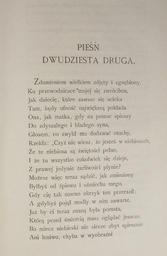 PIEŚŃ
DWUDZIESTA DRUGA.
Zdumieniem wielkiem zdjęty i zgnębiony
Ku przewodniczce mojej się zwróciłem,
Jak dziecię, które zawsze się ucieka
Tam, kędy ufność największą pokłada
Ona, jak matka, gdy na pomoc spieszy
Do zdyszałego i bladego syna,
Głosem, co zwykł mu dodawać otuchy,
Rzekła: „Czyż nie wiesz, że jesteś w niebiosach,
Że te niebiosa są świętości pełne,
I że tu wszystko cokolwiek się dzieje,
Z prawej jedynie żarliwości płynie?
Możesz więc teraz sądzić, jak zmieniony
Byłbyś od śpiewu i uśmiechu mego,
Gdy cię tak mocno okrzyk ten przeraził;
A gdybyś pojął modły w nim zawarte,
Już by ci teraz znaną była pomsta,
Którą przed śmiercią masz oglądać jeszcze.
Bo miecz niebieski nie siecze zbyt spiesznie
Ani leniwo, chyba w wyobraźni